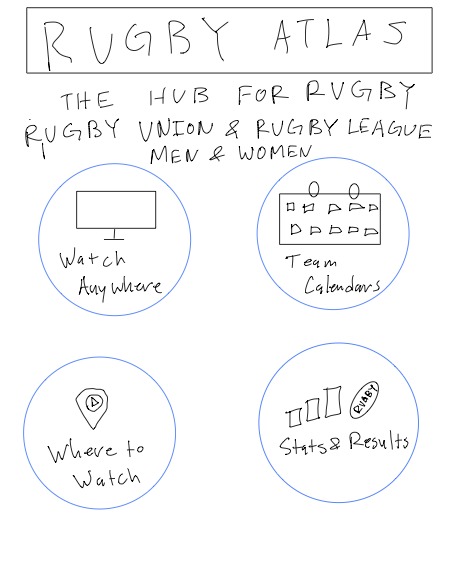 RUGBY ATLAS
THE HUB FOR RUGBY
RUGBY UNION & RUGBY LEAGUE
MEN & WOMEN
Watch
Anywhere
Team
Calendars
Where to
Watch
RUGBY
Stats & Results